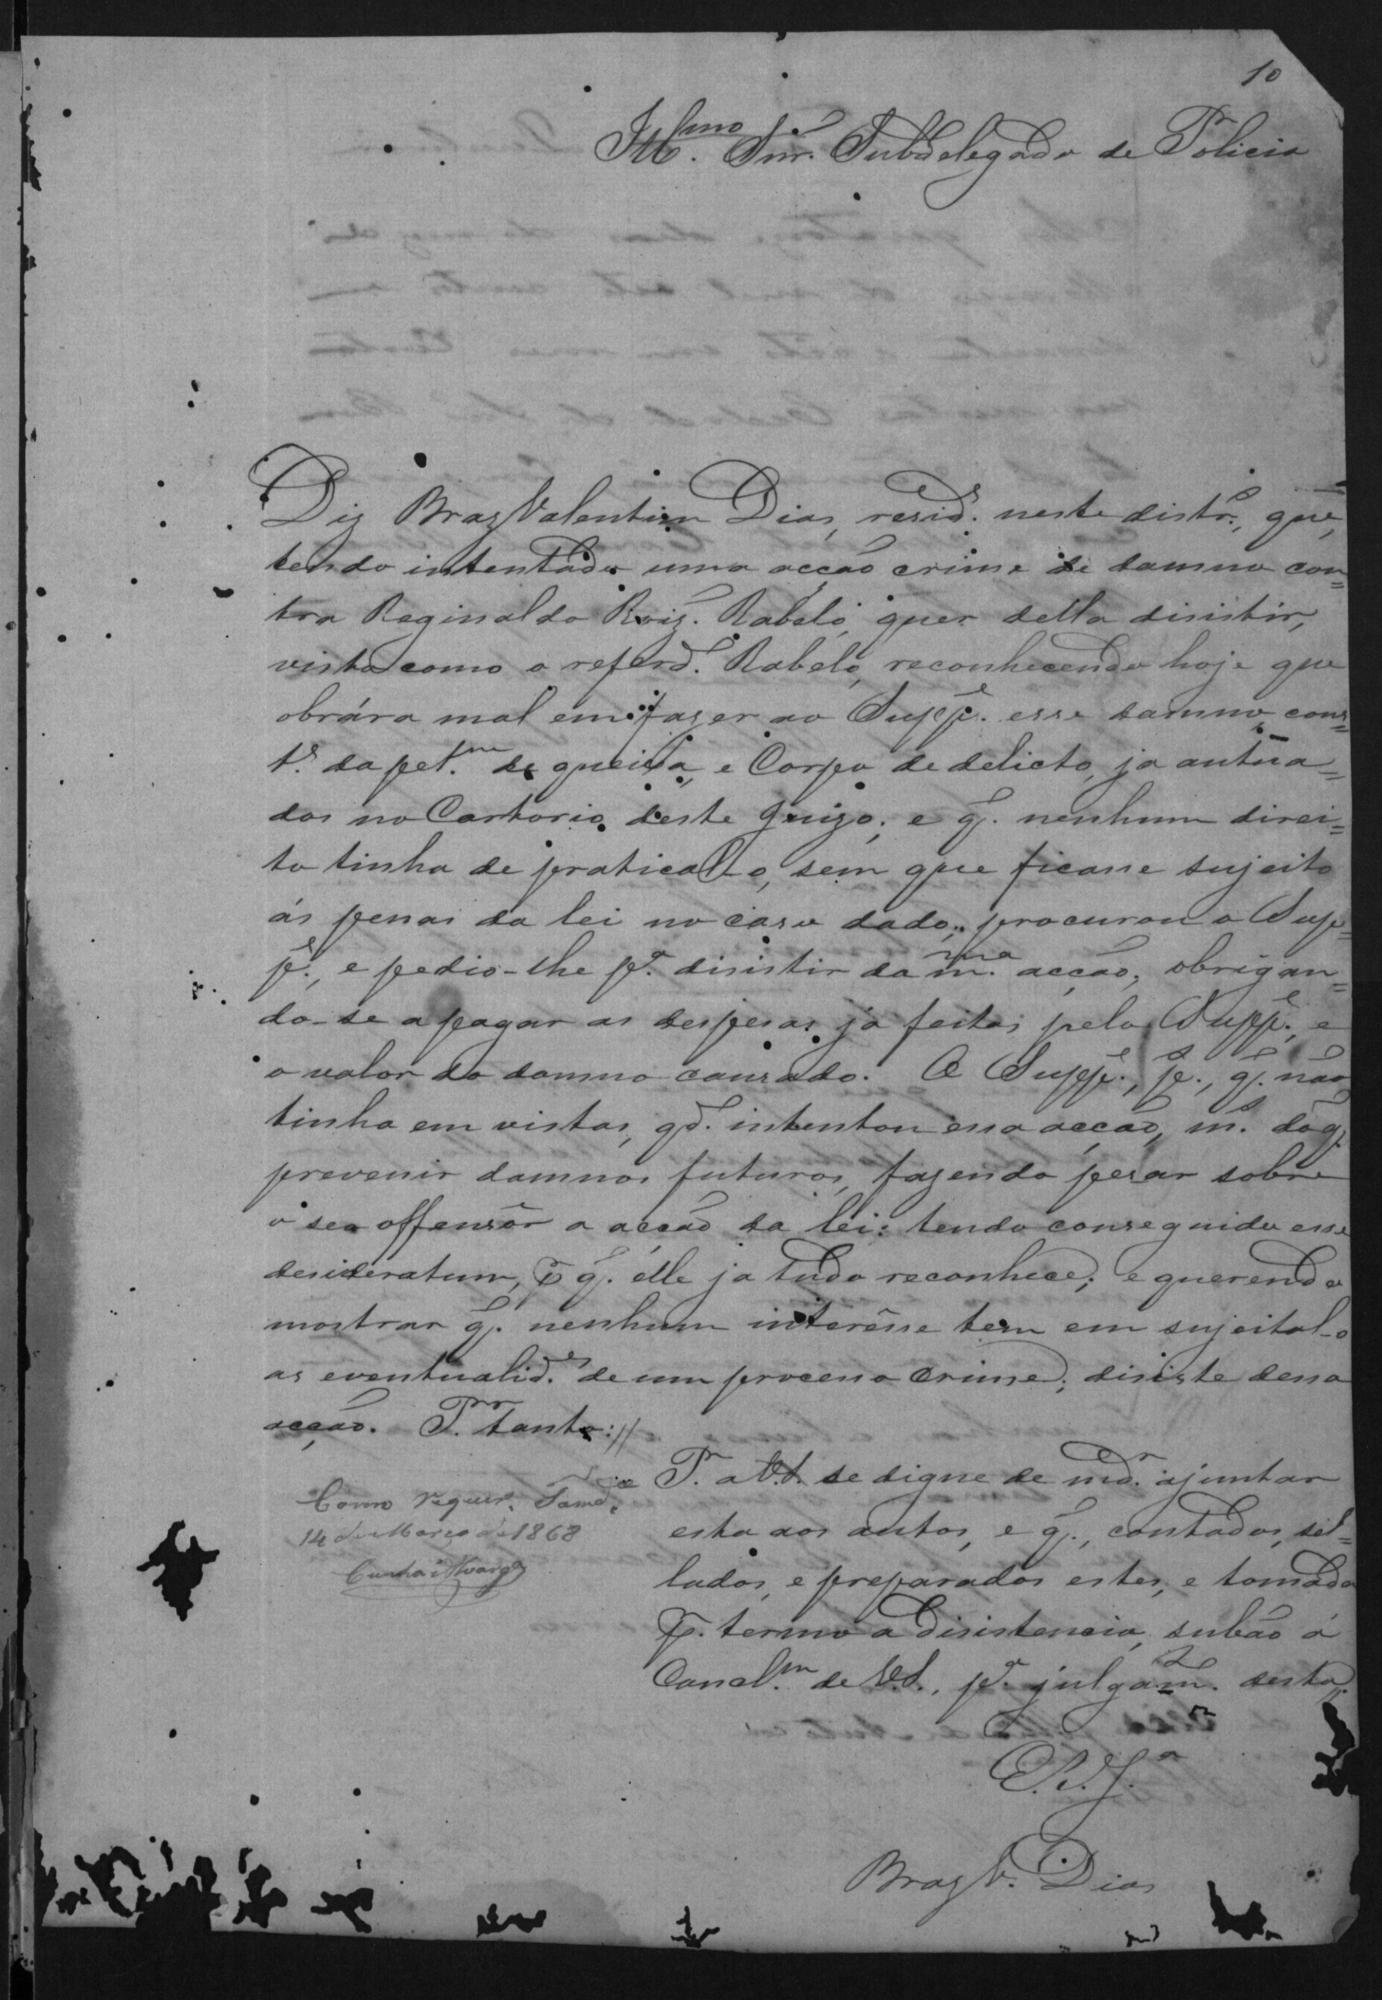 10
Ill.mo Snr. Subdelegado de Policia
Diz Braz Valentim Dias, resid.e neste distr.o, que,
tendo intentado uma acção crime de damno con=
tra Reginaldo Roiz. Rabelo, quer della disistir,
visto como o referd.o Rabelo, reconhecendo hoje que
obrára mal em fazer ao Supp.e esse damno, cons=
t.e da pet.am de queixa, e Corpo de delicto, ja autua=
dos no Cartorio deste Juizo; e q. nenhum direi=
to tinha de pratical-o, sem que ficasse sujeito
ás penas da lei no caso dado; procurou o Sup=
p.e, e pedio-lhe p.a disistir da m.ma acção, obrigan=
do-se a pagar as despesas ja feitas pelo Supp.e, e
o valor do damno causado. O Supp.e, p.r q. não
tinha em vistas, qd.o intentou essa acção, m.s do q.
prevenir damnos futuros, fazendo pesar sobre
o seo offensôr a acção da lei: tendo conseguido esse
desideratum, p. q. élle ja tudo reconhece; e querendo
mostrar q. nenhum interêsse tem em sujeital-o
as eventualid.es de um processo crime, disiste dessa
acção. P.r tanto://
P. a V.S. se digne de md.ar ajuntar
esta aos autos, e q., contados, sel=
lados, e preparados estes, e tomada
p. termo a disistencia, subão á
Concl.am de V.S., p.a julgam.to desta.
Como requer.
14 de Março de 1868
E.R.J.a
Braz V. Dias